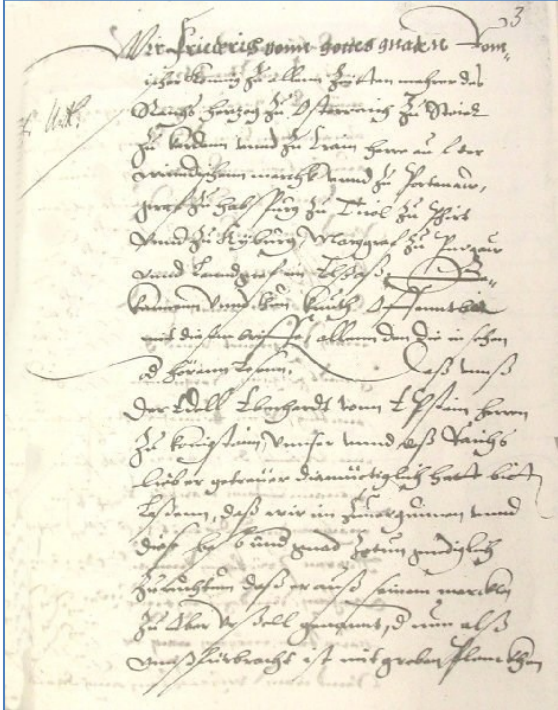 3
Wir Friderich vonn gottes gnaden Rom-
ischer Konnig zu allenn Zÿtten mehrer des
Reichs hertzog zu Osterreich zu Steier
zu Kerdenn vnnd zu Crain herre auf der
windischenn marchk vnnd zu Portenaw,
graf zu habspurg zu Tirol zu Pfirt
vnnd zu Kÿburg, Marggraf zu Burgaw
vnnd Landgraf in Elsaß, Be-
kennen vnnd thun kundt Offenntbar
mit diesem brieff allenn den die in sehen
od hörenn lesenn, daß vnnß
der Edell Eberhardt vonn Epstein herrn
zu Konigstein, vnnser vnnd deß Reichs
lieber getrewer diemüttiglich hatt bitt
lassenn, daß wir im zuuergunnen vnnd
diese vnd gnad zethun gnediglich
daß er auß seinem marckt
zu Ober Vrsell genannt, d nun alß
vnnß fürbracht ist mit graben planckhen